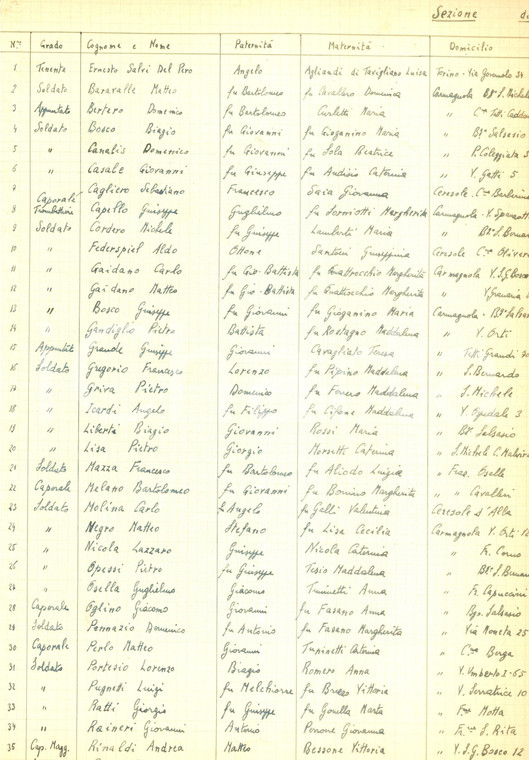 Sezione
N.° Grado Cognome e Nome Paternità Maternità Domicilio
1 Tenente Ernesto Salvi Del Pero Angelo Agliandi di Tavigliano Luisa Torino - Via 34
2 Soldato Baravalle Matteo fu Bartolomeo fu Cavallero Domenica Carmagnola
3 Appuntato Bertero Domenico fu Bartolomeo Curletti Maria "
4 Soldato Bosco Biagio fu Giovanni fu Gioganino Maria " Salsasio
5 " Canalis Domenico fu Giovanni fu Sola Beatrice " P. Collegiata
6 " Casale Giovanni fu Giuseppe fu Audisio Caterina " V. Gatti 5
7 " Cagliero Sebastiano Francesco Saia Giovanna Ceresole
8 Caporale Trombettiere Capello Giuseppe Guglielmo fu Sorniotti Margherita Carmagnola
9 Soldato Cordero Michele fu Giuseppe Lamberti Maria "
10 " Federspiel Aldo Ottone Santoni Giuseppina Ceresole
11 " Gaidano Carlo fu Gio-Battista fu Quattrocchio Margherita Carmagnola V. S. G. Bosco
12 " Gaidano Matteo fu Gio-Battista fu Quattrocchio Margherita "
13 " Bosco Giuseppe fu Giovanni fu Gioganino Maria Carmagnola -
14 " Gandiglio Pietro Battista fu Rostagno Maddalena " V. Orti
15 Appuntato Grande Giuseppe Giovanni Cavagliato Teresa " Tetti Grandi
16 Soldato Gregorio Francesco Lorenzo fu Pipino Maddalena " S. Bernardo
17 " Griva Pietro Domenico fu Ferrero Maddalena " S. Michele
18 " Icardi Angelo fu Filippo fu Maddalena " V. Ospedale 3
19 " Libertà Biagio Giovanni Rossi Maria " Salsasio
20 " Lisa Pietro Giorgio Caterina " S. Michele
21 Soldato Mazza Francesco fu Bartolomeo fu Aliodo Luigia " Fraz.
22 Caporale Melano Bartolomeo fu Giovanni fu Bonino Margherita " " Cavalleri
23 Soldato Molina Carlo Angelo fu Galli Valentina Ceresole d'Alba
24 " Negro Matteo Stefano fu Lisa Cecilia Carmagnola V. Orti
25 " Nicola Lazzaro Giuseppe Nicola Caterina " Corno
26 " Opessi Pietro fu Giuseppe Tesio Maddalena "
27 " Osella Guglielmo Giacomo Tuninetti Anna " Cappuccini
28 Caporale Oglino Giacomo Giovanni fu Fasano Anna " Salsasio
29 Soldato Pennazio Domenico fu Antonio fu Fasano Margherita " Via Moneta 25
30 Caporale Perlo Matteo Giovanni Tuninetti Caterina " Borga
31 Soldato Portesio Lorenzo Biagio Romero Anna " V. Umberto I-65
32 " Pugnetti Luigi fu Melchiorre fu Vittoria " V. Serratrice 10
33 " Ratti Giorgio fu Giuseppe fu Gonella Marta " Motta
34 " Raineri Giovanni Antonio Perrone Giovanna " S. Rita
35 Cap. Magg. Rinaldi Andrea Matteo Bessone Vittoria " V. S. G. Bosco 12